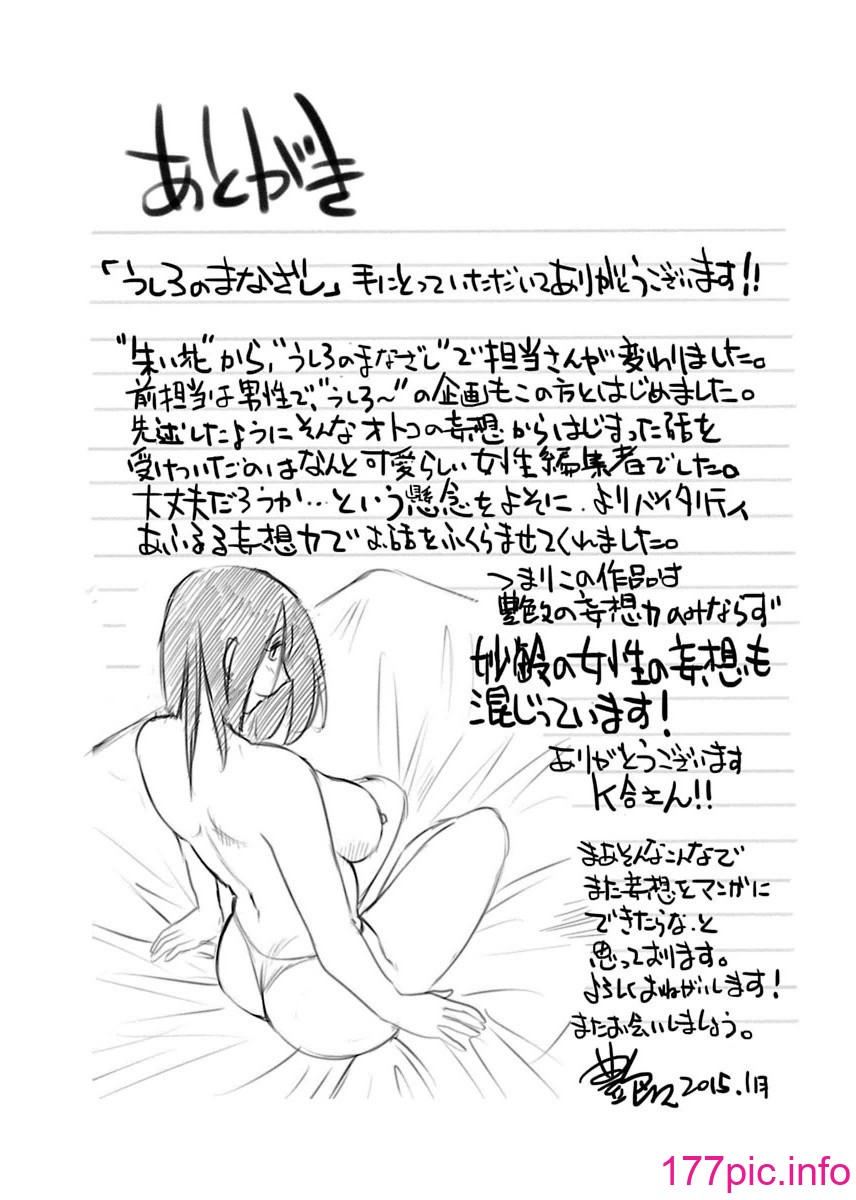 あとがき
「うしろのまなざし」手にとっていただいてありがとうございます!!
"朱い花"から、"うしろのまなざし"で担当さんが変わりました。
前担当は男性で、"うしろ〜"の企画もこの方とはじめました。
先述したようにそんなオトコの妄想からはじまった話を
受けついだのはなんと可愛らしい女性編集者でした。
大丈夫だろうか…という懸念をよそに、よりバイタリティ
あふるる妄想力でお話をふくらませてくれました。
つまりこの作品は
艶々の妄想力のみならず
妙齢の女性の妄想も
混じっています!
ありがとうございます
K合さん!!
まあそんなこんなで
また妄想をマンガに
できたらな、と
思っております。
よろしくおねがいします!
またお会いしましょう。
艶々 2015.1月
177pic.info